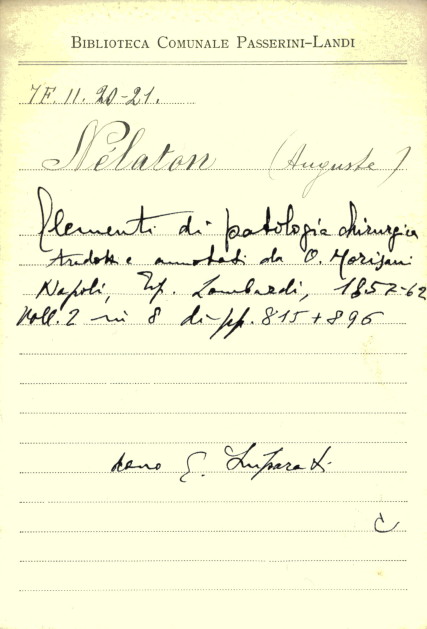 BIBLIOTECA COMUNALE PASSERINI-LANDI
7F. II. 20-21.
Nélaton (Auguste)
Elementi di patologia chirurgica
tradotti e annotati da O. Morisani
Napoli, Tip. Lombardi, 1857-62
Voll. 2 in 8 di pp. 815+896
dono
C